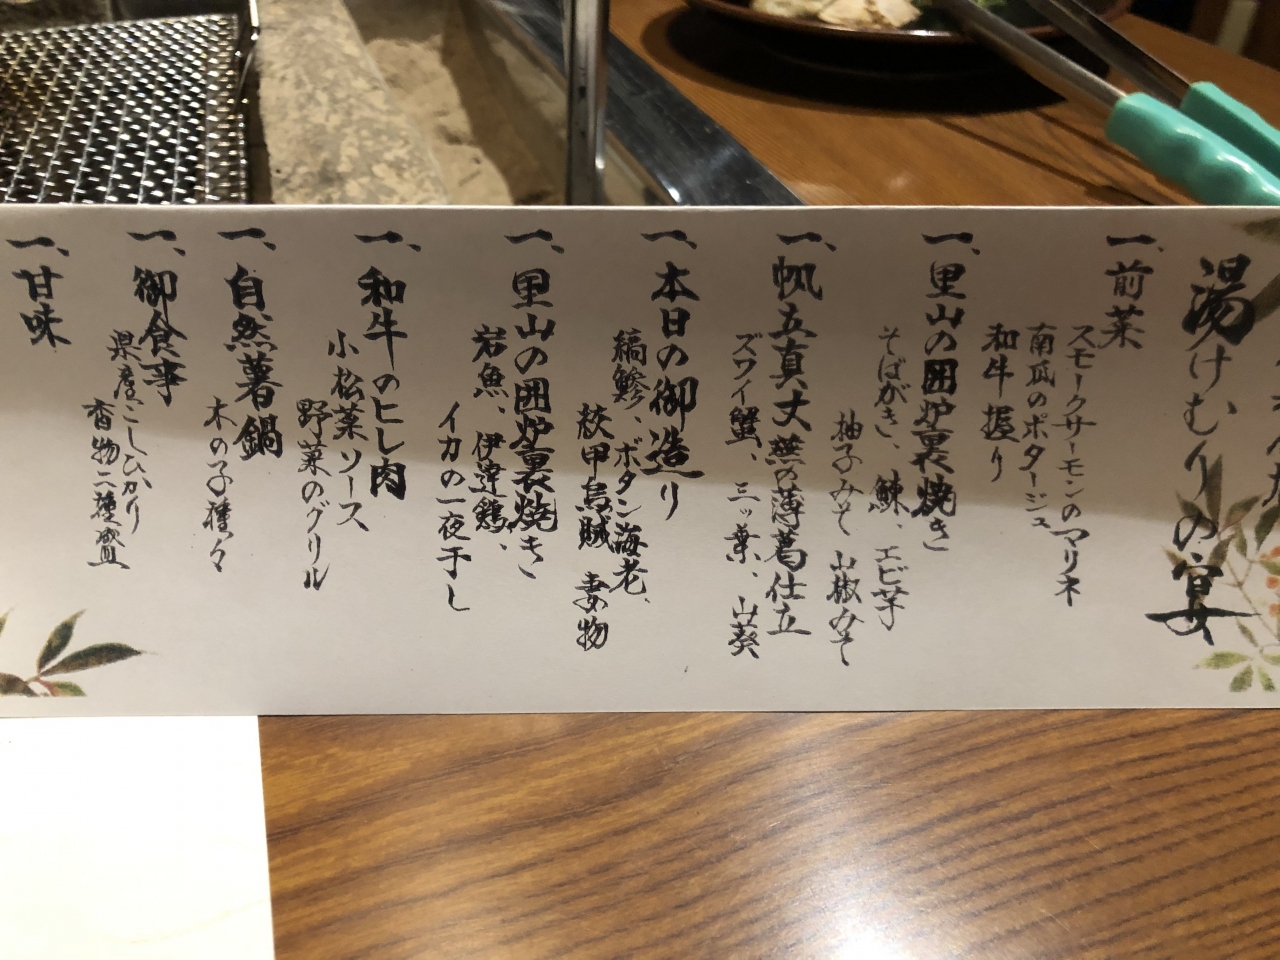 湯けむりの宴
一、前菜
スモークサーモンのマリネ
南瓜のポタージュ
和牛握り
一、里山の囲炉裏焼き
そばがき、鰊、エビ芋
柚子みそ 山椒みそ
一、帆立真丈蕪の薄葛仕立
ズワイ蟹、三ッ葉、山葵
一、本日の御造り
縞鯵、ボタン海老、
紋甲烏賊 妻物
一、里山の囲炉裏焼き
岩魚、伊達鶏、
イカの一夜干し
一、和牛のヒレ肉
小松菜ソース
野菜のグリル
一、自然薯鍋
木の子種々
一、御食事
県産こしひかり
香物二種盛
一、甘味